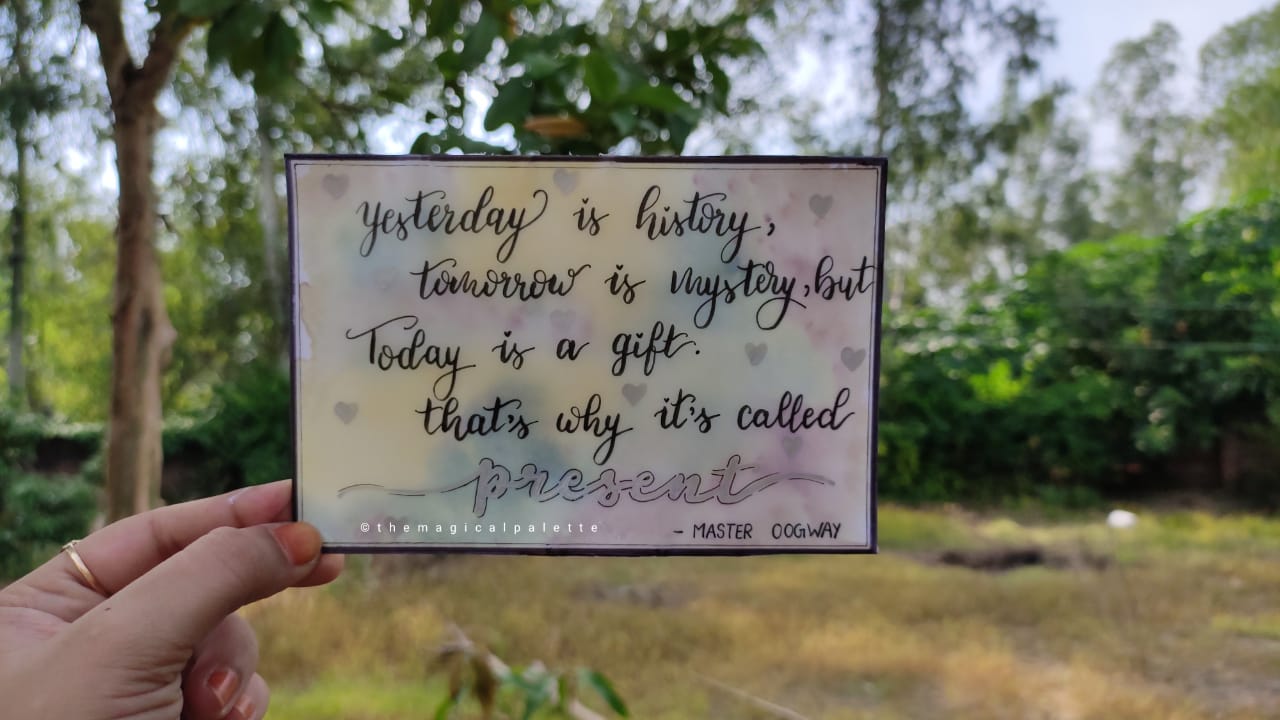 yesterday is history,
tomorrow is mystery, but
Today is a gift.
that's why it's called
present
©themagicalpalette
- MASTER OOGWAY